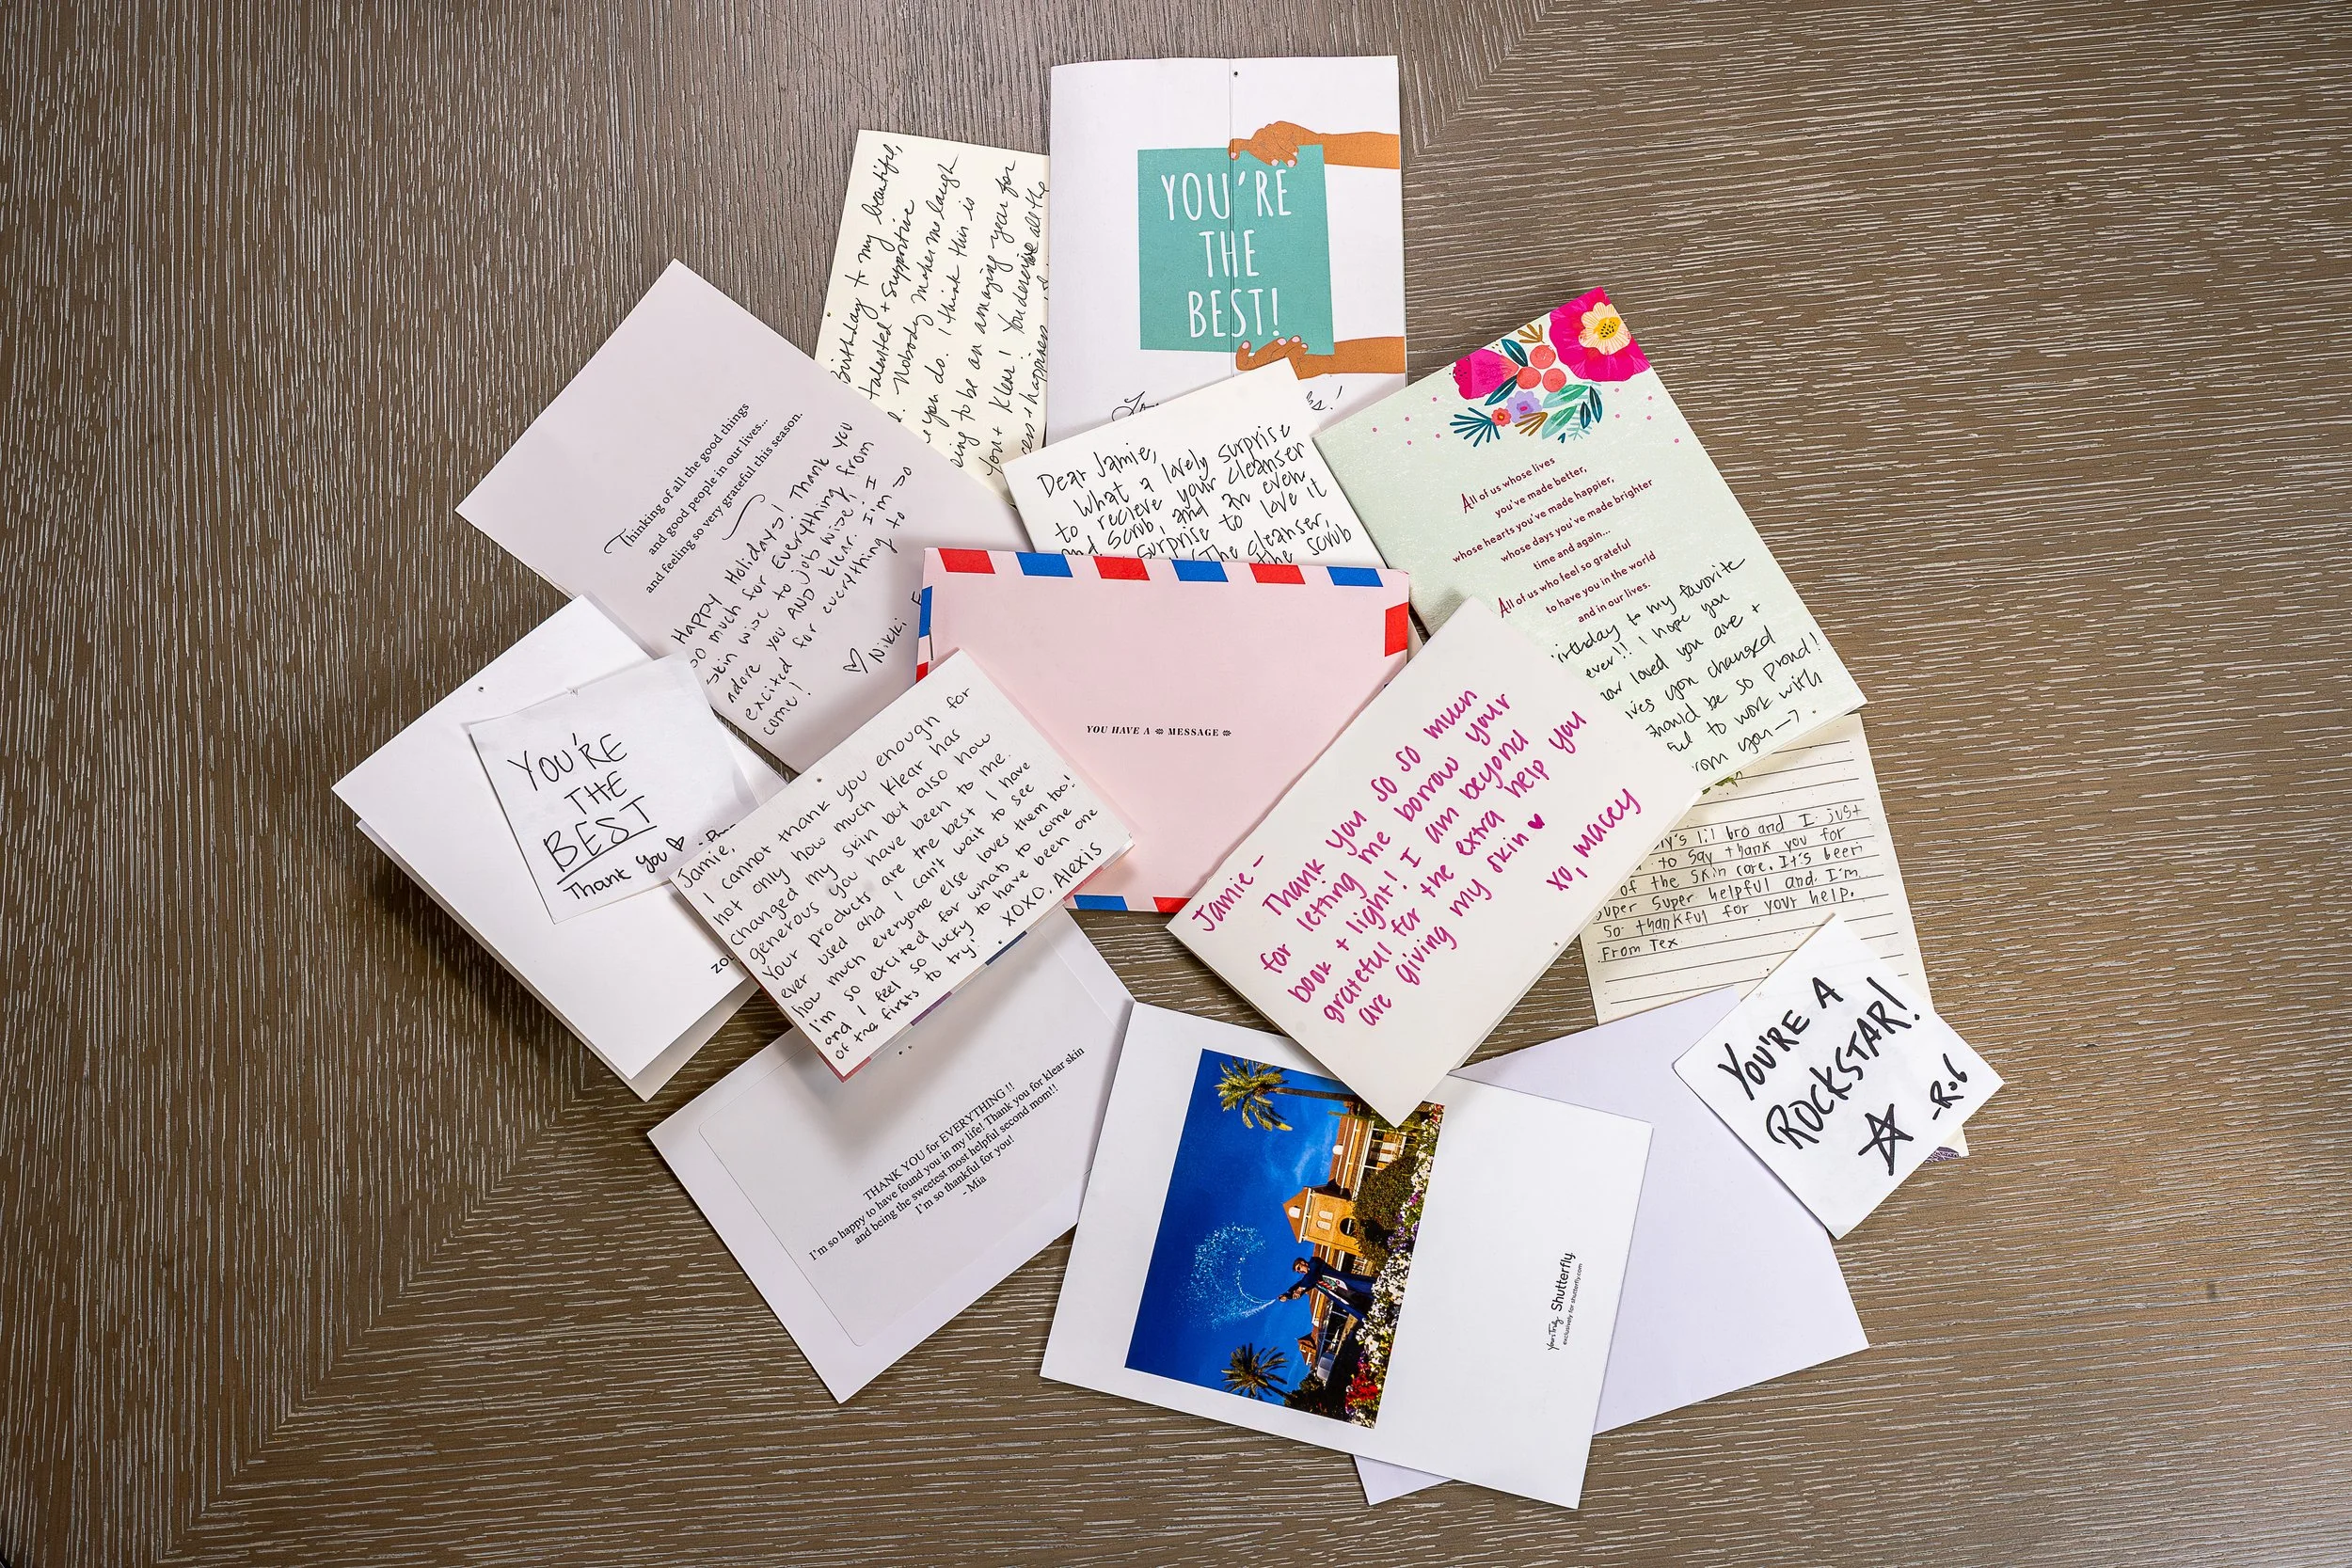 Birthday to my beautiful,
talented + supportive
Nobody makes me laugh
you do. I think this is
to be an amazing year for
you + Klear! You deserve all the
+ happiness
YOU'RE
THE
BEST!
Thinking of all the good things
and good people in our lives...
and feeling so very grateful this season.
Happy Holidays! Thank you
so much for Everything, from
skin wise to job wise! I
adore you AND Klear. I'm so
excited for everything to
come!
♡ Nikki
Dear Jamie,
What a lovely surprise
to recieve your cleanser
and scrub, and an even
surprise to love it
The cleanser,
the scrub
All of us whose lives
you've made better,
whose hearts you've made happier,
whose days you've made brighter
time and again...
All of us who feel so grateful
to have you in the world
and in our lives.
to my favorite
ever!! I hope you
loved you are +
you changed
be so proud!
to work with
you
YOU HAVE A MESSAGE
YOU'RE
THE
BEST
Thank you ♡
Jamie,
I cannot thank you enough for
not only how much Klear has
changed my skin but also how
generous you have been to me.
Your products are the best I have
ever used and I can't wait to see
how much everyone else loves them too!
I'm so excited for whats to come
and I feel so lucky to have been one
of the firsts to try. XOXO, Alexis
Jamie-
Thank you so so much
for letting me borrow your
book + light! I am beyond
grateful for the extra help you
are giving my skin ♥
xo, Macey
lil bro and I just
to say thank you for
of the skin care. It's been
super super helpful and I'm
so thankful for your help.
From Tex
YOU'RE A
ROCKSTAR!
-Rob
THANK YOU for EVERYTHING !!
I'm so happy to have found you in my life! Thank you for klear skin
and being the sweetest most helpful second mom!!
I'm so thankful for you!
- Mia
Yours Truly Shutterfly
exclusively for shutterfly.com